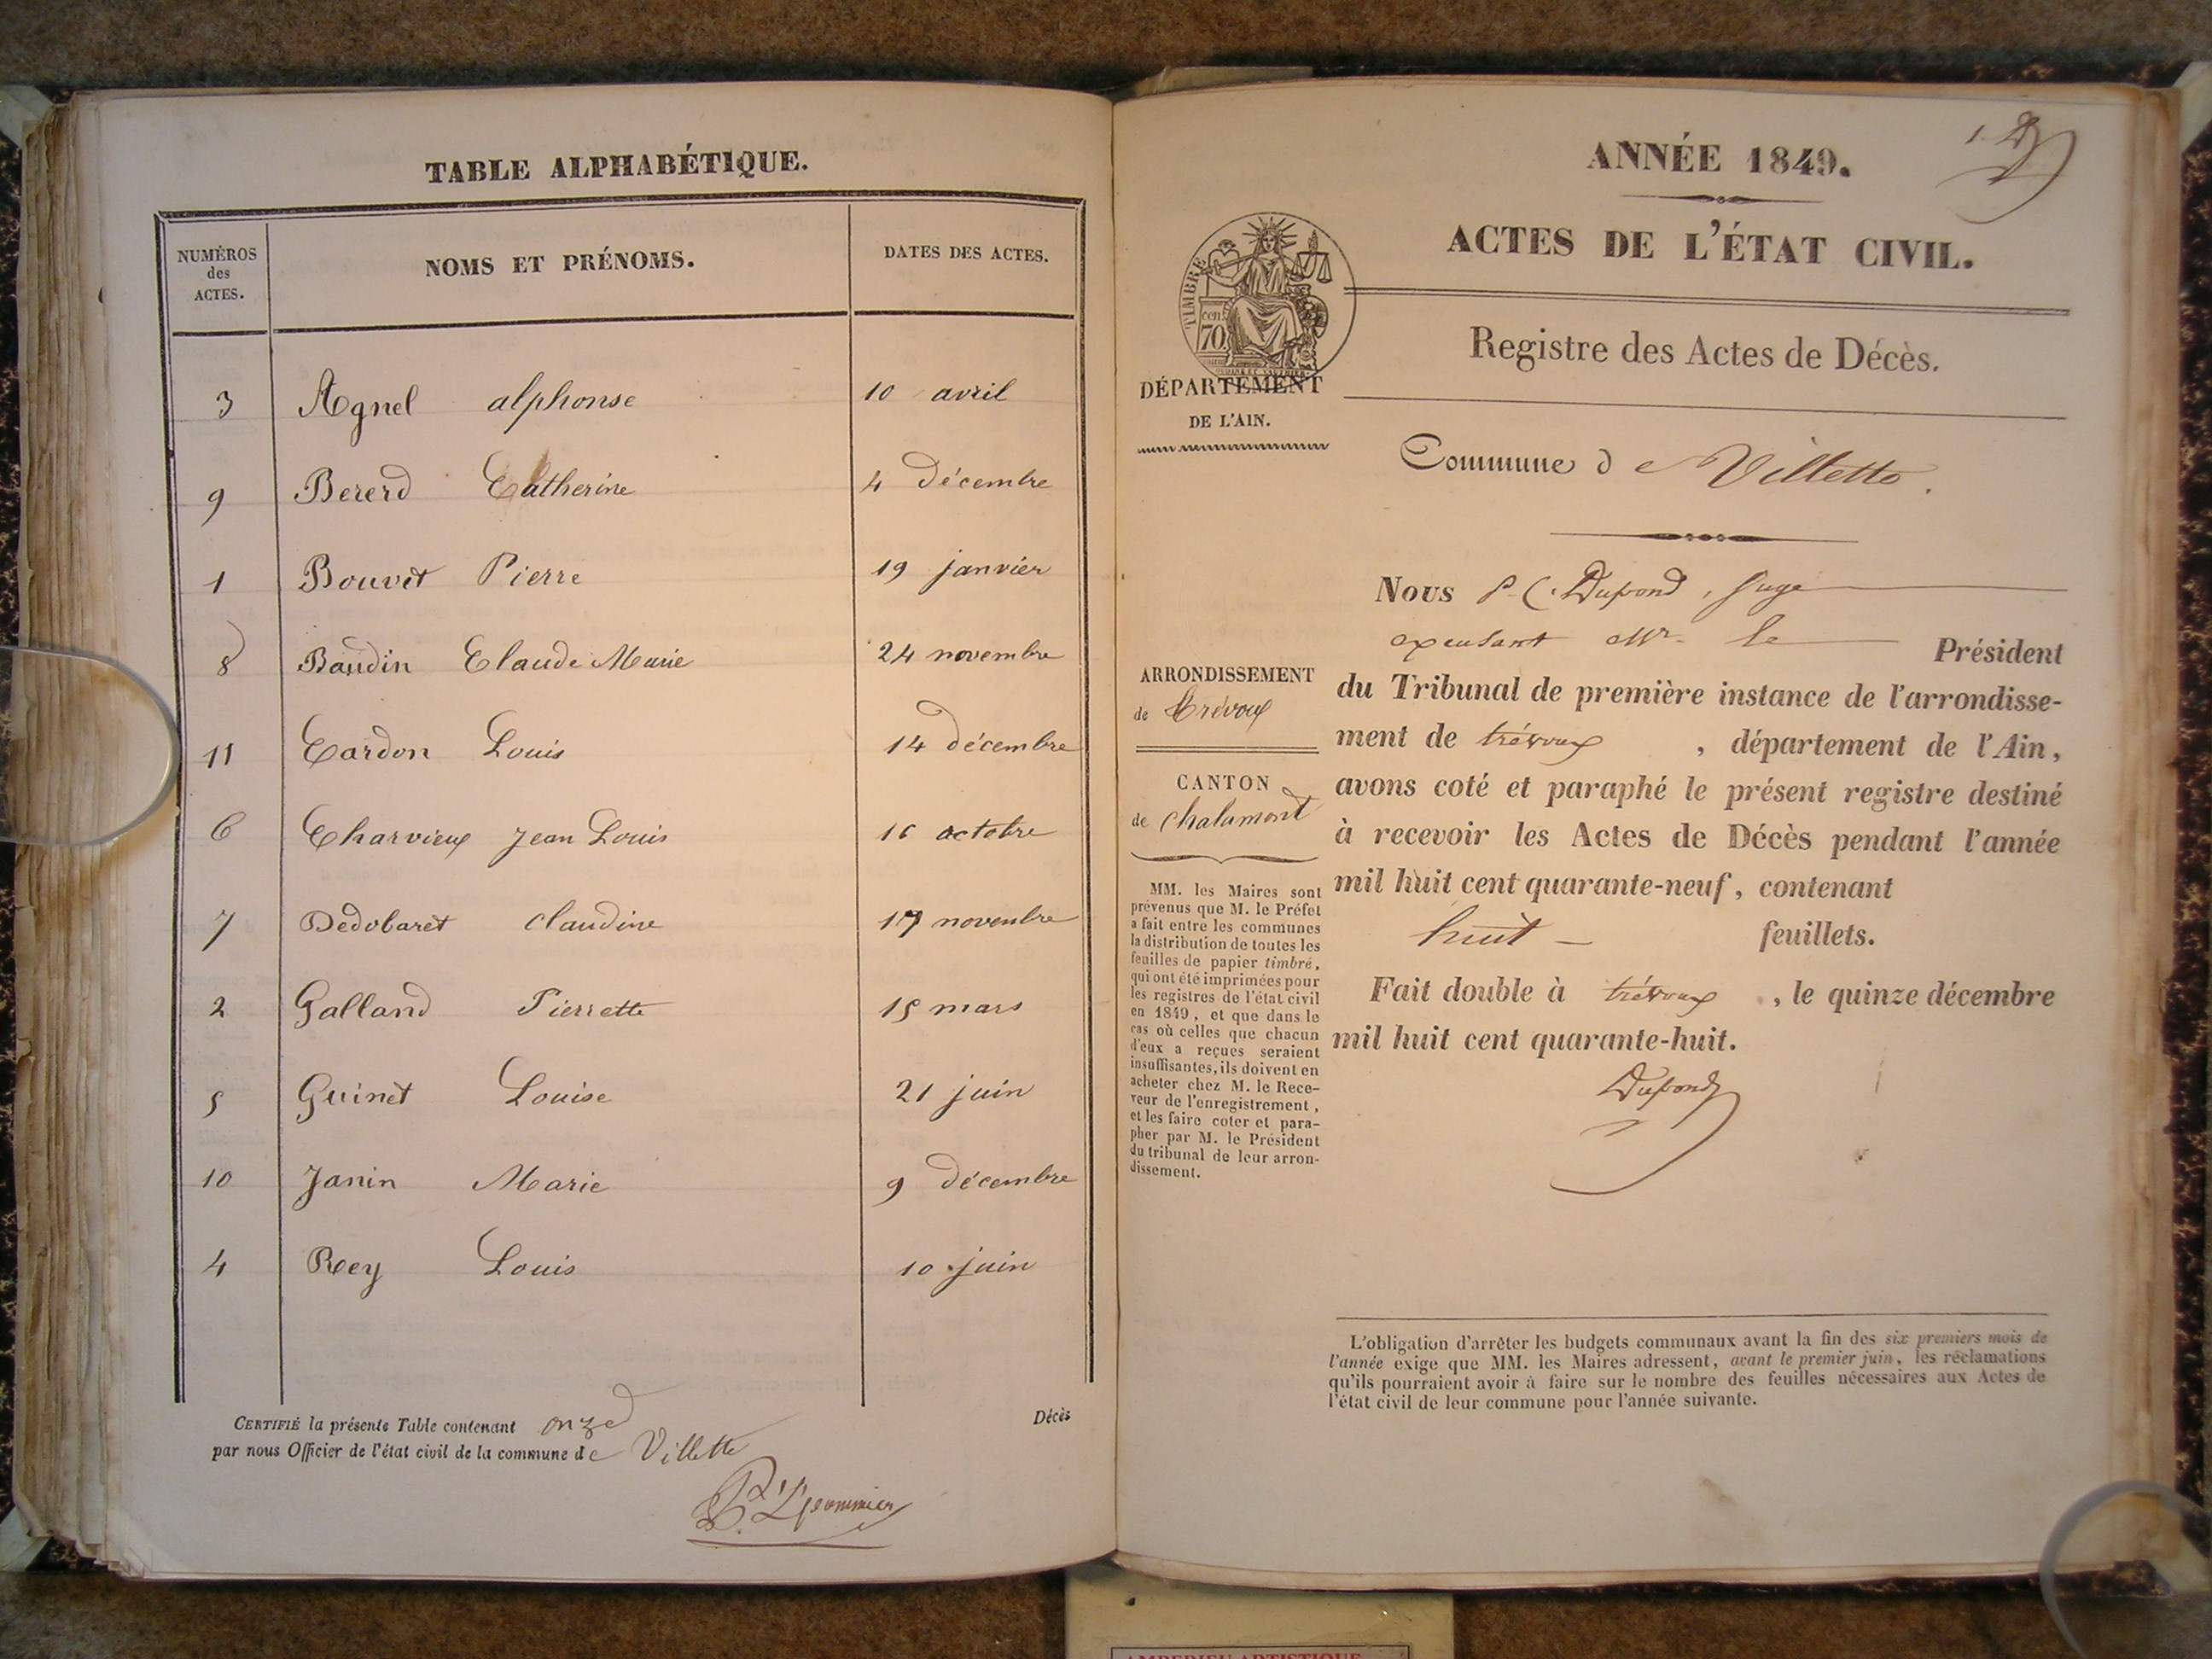 TABLE ALPHABÉTIQUE.
NUMÉROS des ACTES. NOMS ET PRÉNOMS. DATES DES ACTES.
3 Agnel alphonse 10 avril
9 Bererd Catherine 4 décembre
1 Bouvet Pierre 19 janvier
8 Baudin Claude Marie 24 novembre
11 Cardon Louis 14 décembre
6 Charvieux Jean Louis 16 octobre
7 Dedobaret Claudine 17 novembre
2 Galland Pierrette 15 mars
5 Guinet Louise 21 juin
10 Janin Marie 9 décembre
4 Rey Louis 10 juin
CERTIFIÉ la présente Table contenant onze Décès
par nous Officier de l'état civil de la commune de Villette
ANNÉE 1849.
ACTES DE L'ÉTAT CIVIL.
TIMBRE
70 cen.
Registre des Actes de Décès.
DÉPARTEMENT
DE L'AIN.
Commune de Villette.
ARRONDISSEMENT
de Trévoux
CANTON
de Chalamont
MM. les Maires sont
prévenus que M. le Préfet
a fait entre les communes
la distribution de toutes les
feuilles de papier timbré,
qui ont été imprimées pour
les registres de l'état civil
en 1849, et que dans le
cas où celles que chacun
d'eux a reçues seraient
insuffisantes, ils doivent en
acheter chez M. le Rece-
veur de l'enregistrement,
et les faire coter et para-
pher par M. le Président
du tribunal de leur arron-
dissement.
Nous P. C. Dupond, Juge
Mr le Président
du Tribunal de première instance de l'arrondisse-
ment de trévoux, département de l'Ain,
avons coté et paraphé le présent registre destiné
à recevoir les Actes de Décès pendant l'année
mil huit cent quarante-neuf, contenant
huit feuillets.
Fait double à trévoux, le quinze décembre
mil huit cent quarante-huit.
Dupond
L'obligation d'arrêter les budgets communaux avant la fin des six premiers mois de
l'année exige que MM. les Maires adressent, avant le premier juin, les réclamations
qu'ils pourraient avoir à faire sur le nombre des feuilles nécessaires aux Actes de
l'état civil de leur commune pour l'année suivante.